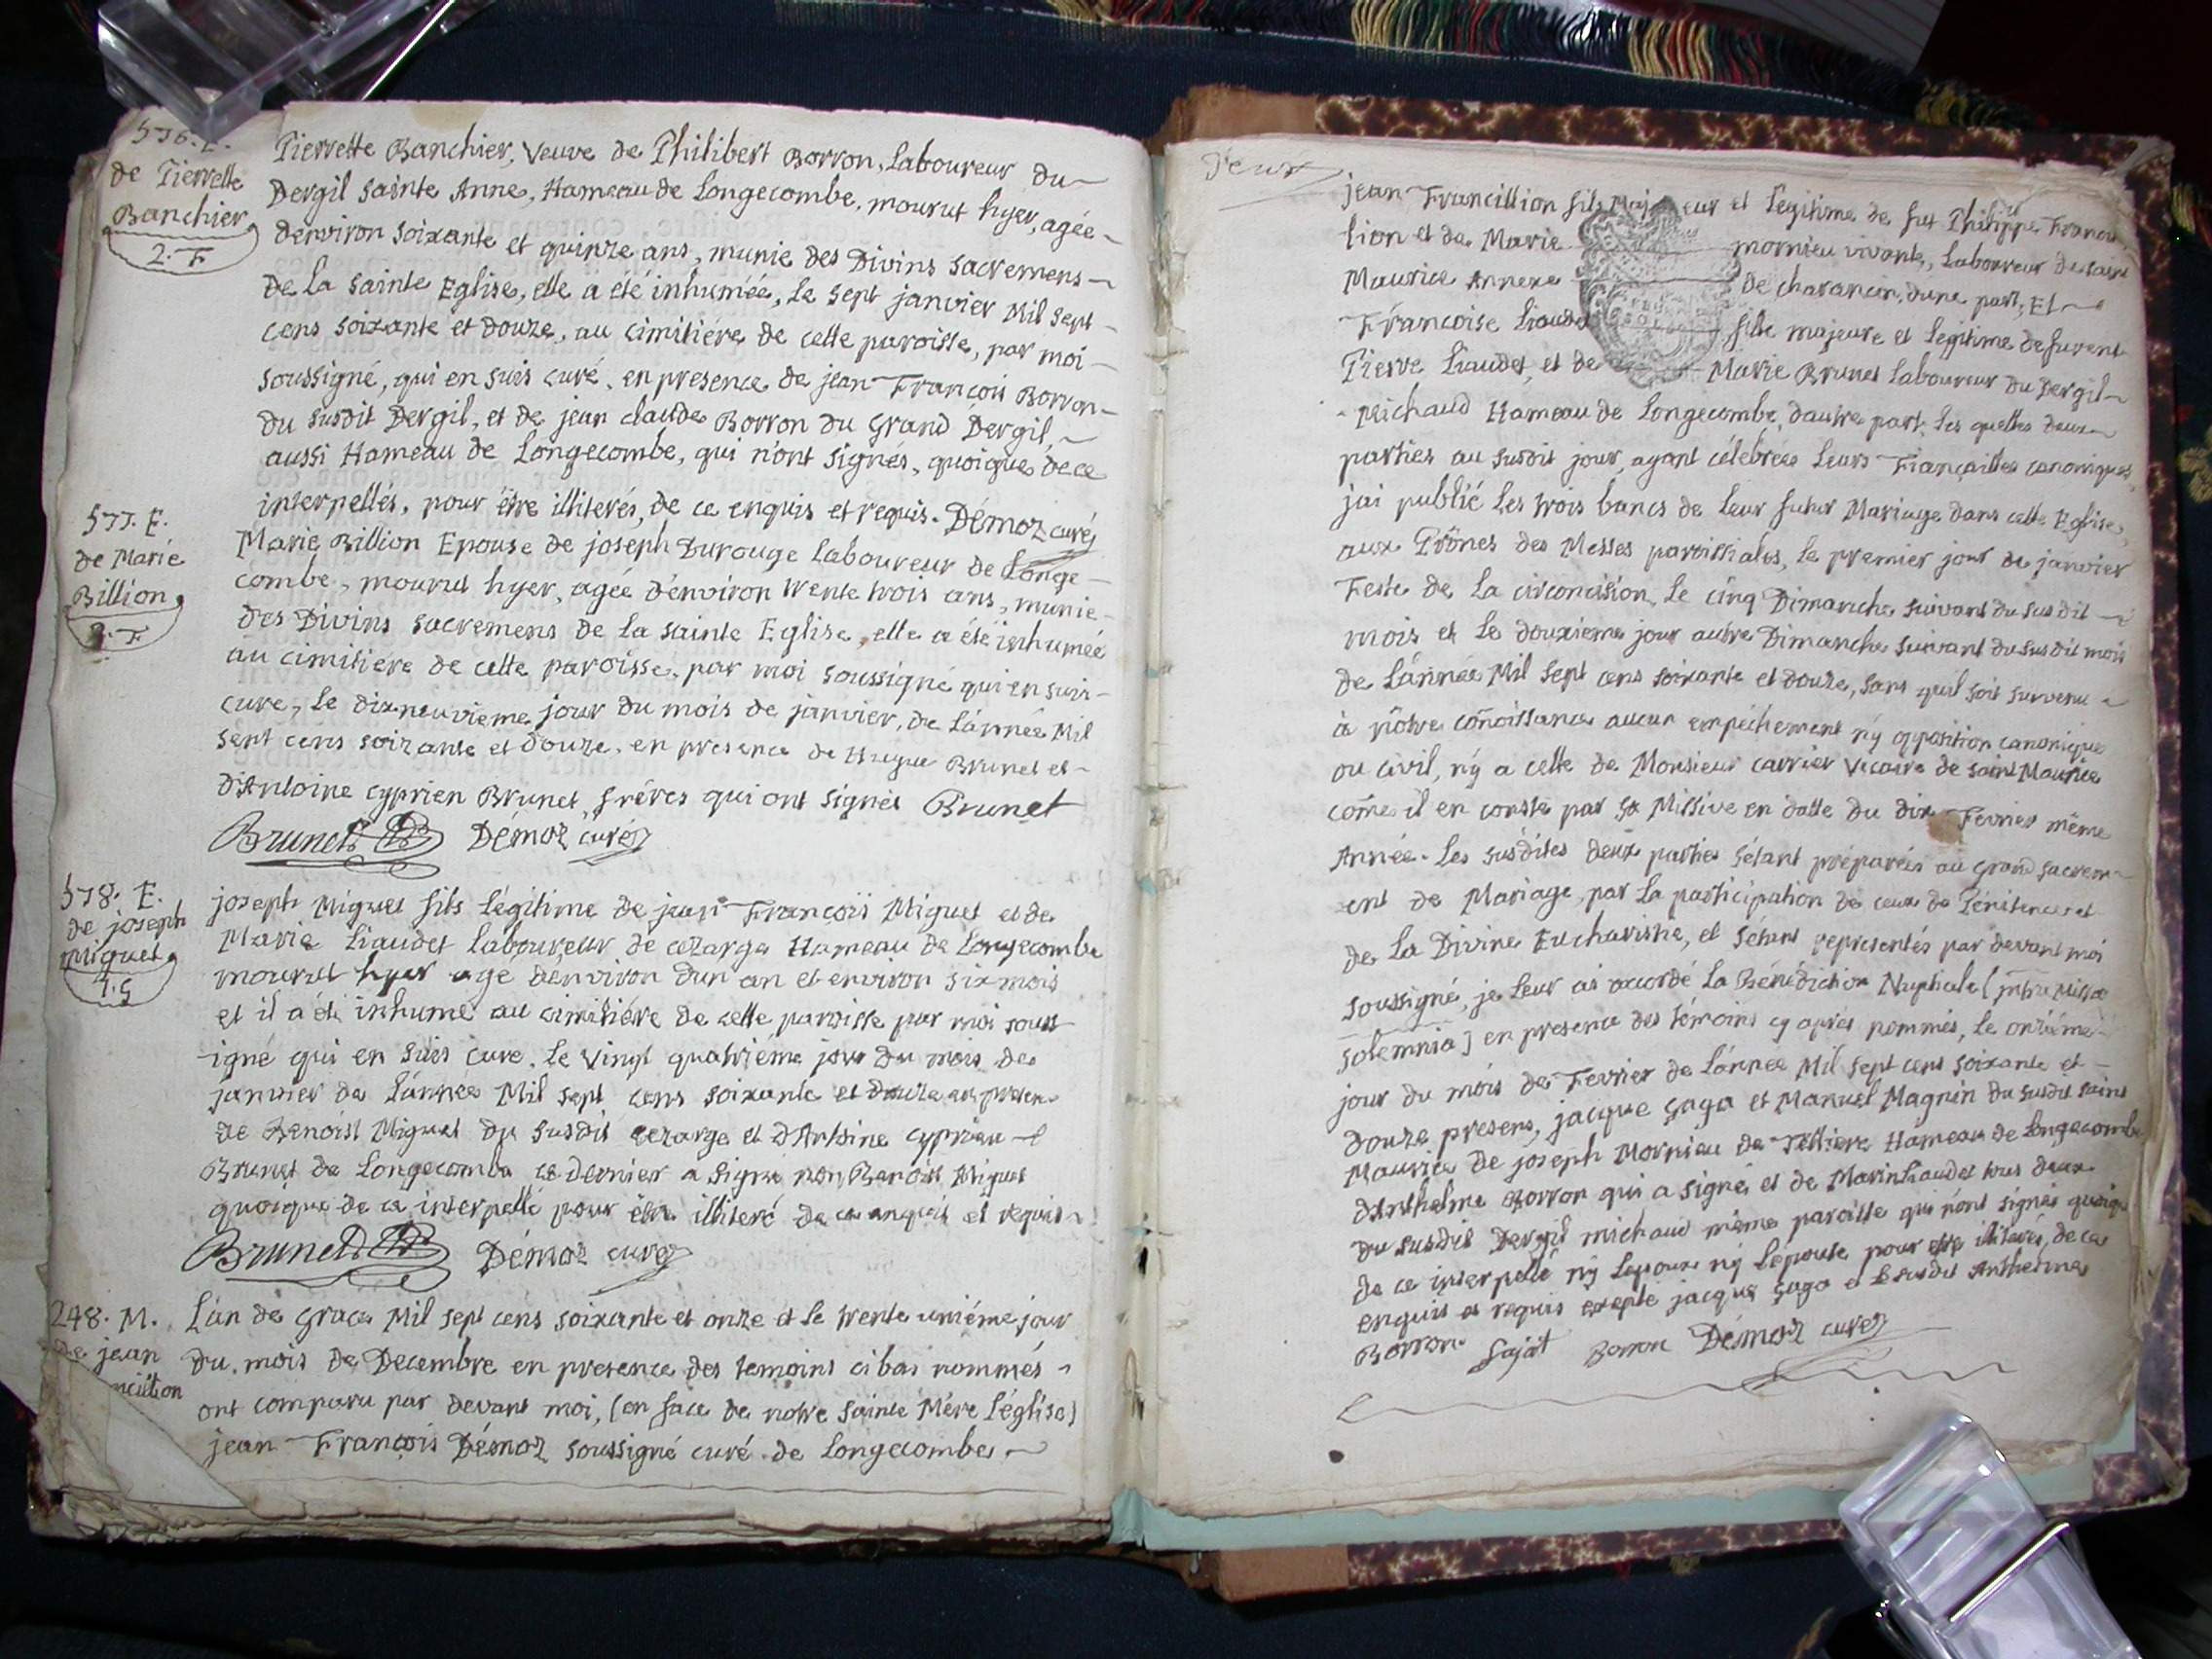 576. E.
de Pierrette
Banchier
2. F
Pierrette Banchier, veuve de Philibert Borron, Laboureur du
Dergil sainte Anne, Hameau de Longecombe, mourut hyer, agée
denviron soixante et quinze ans, munie des Divins sacremens
de La sainte Eglise, elle a été inhumée, Le sept janvier Mil sept
cens soixante et douze, au cimitiére de cette paroisse, par moi
soussigné, qui en suis curé, en presence de jean François Borron
du susdit Dergil, et de jean claude Borron du Grand Dergil,
aussi Hameau de Longecombe, qui n'ont signés, quoique de ce
interpellés, pour être illiterés, de ce enquis et requis. Démoz curé
577. E.
de Marie
Billion
3. F
Marie Billion Epouse de joseph Durouge Laboureur de Longe
combe, mourut hyer, agée d'environ trente trois ans, munie
des Divins sacremens de La sainte Eglise, elle a été inhumée
au cimitiére de cette paroisse, par moi soussigné qui en suis
curé, Le dix neuvieme jour du mois de janvier, de L'année Mil
sept cens soixante et douze, en presence de Hugue Brunet et
d'Antoine cyprien Brunet, fréres qui ont signés Brunet
Brunet Démoz curé
578. E.
de joseph
Miguet
4. G
joseph Miguet fils légitime de jean François Miguet et de
Marie Liaudet Laboureur de cezarge Hameau de Longecombe
mourut hyer age denviron dun an et environ six mois
et il a été inhume au cimitiére de cette paroisse par moi souss
igné qui en suis cure, Le vingt quatriéme jour du mois de
janvier de L'année Mil sept cens soixante et douze en presen
de Benoist Miguet du susdit cezarge et d'Antoine cyprien
Brunet de Longecombe ce dernier a signé non Benoist Miguet
quoique de ce interpellé pour être illiteré de ce enquis et requis
Brunet Démoz curé
248. M.
de jean
ncillion
L'an de Grace Mil sept cens soixante et onze et Le trente uniéme jour
du mois de Decembre en presence des temoins cibas nommés
ont comparu par devant moi, (en face de notre sainte Mére l'église)
jean François Démoz soussigné curé de Longecombe
Deux
jean Francillion fils Majeur et Legitime de fut Philippe Francil
lion et de Marie mornieu vivante, Laboureur de saint
Maurice Annexe de charancin, dune part, Et
Françoise Liaudet fille majeure et Legitime de furent
Pierre Liaudet, et de Marie Brunet Laboureur du Dergil
Michaud Hameau de Longecombe, dautre part, Les quelles deux
parties au susdit jour, ayant célébrées Leurs Fiançailles canoniques,
jai publié Les trois bancs de Leur futur Mariage dans cette Eglise,
aux Prônes des Messes paroissiales, Le premier jour de janvier
Feste de La circoncision, Le cinq Dimanche suivant du susdit
mois et Le douxieme jour autre Dimanche suivant du susdit mois
de L'année Mil sept cens soixante et douze, sans quil soit survenu
à nôtre connoissance aucun empéchement n'y opposition canonique
ou civil, n'y a celle de Monsieur carrier vicaire de saint Maurice
come il en conste par sa Missive en datte du dix Fevrier même
Année. Les susdites deux parties sétant préparées au Grand sacrem
ent de Mariage, par La participation de ceux de Pénitence et
de La Divine Eucharistie, et sétant representés par devant moi
soussigné, je Leur ai accordé La Bénédiction Nuptiale (intra Missæ
solemnia) en presence des témoins cy apres nommés, Le onziéme
jour du mois de Fevrier de L'année Mil sept cens soixante et
douze presens, jacque Gaga et Manuel Magnin du susdit saint
Maurice de joseph Mornieu de Tettiere Hameau de Longecombe
d'Anthelme Borron qui a signé et de Marin Liaudet tous deux
du susdit Dergil michaud même paroisse qui n'ont signés quoique
de ce interpellé n'y Lepoux n'y Lepouse pour être illiterés, de ce
enquis et requis exepté jacque Gaga et Le susdit Anthelme
Borron. Gajat Borron Démoz curé